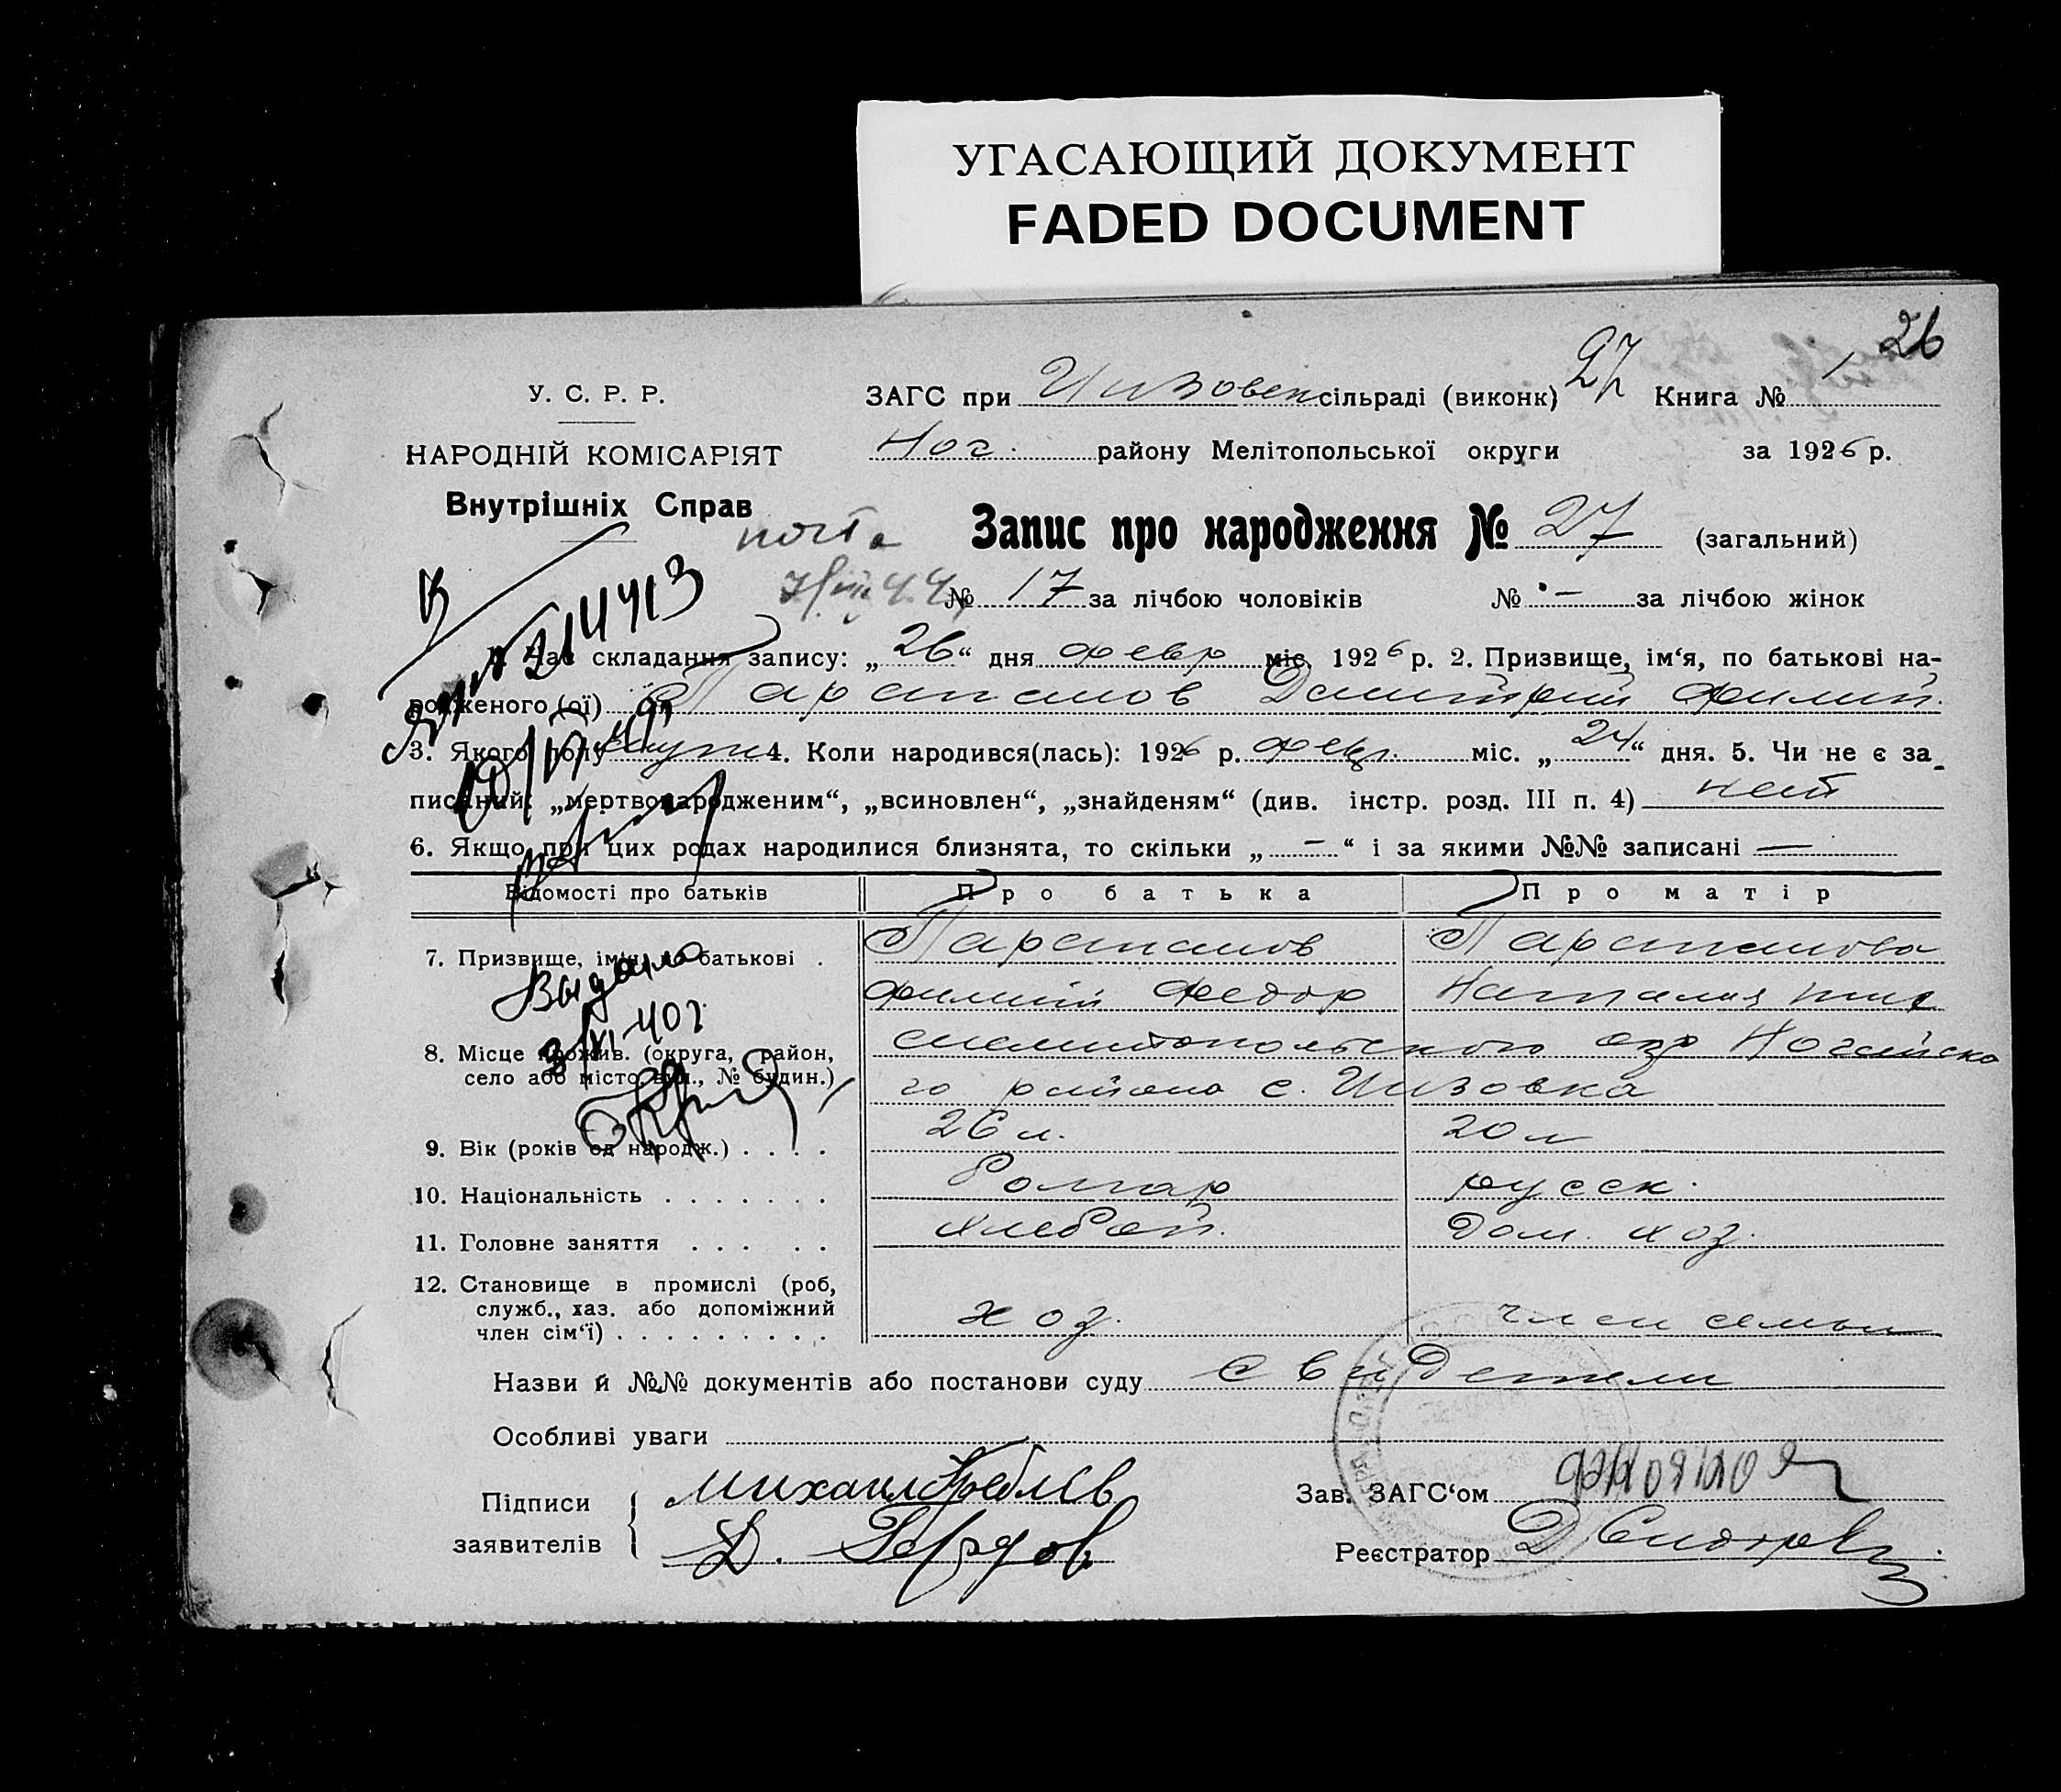 УГАСАЮЩИЙ ДОКУМЕНТ
FADED DOCUMENT
26
У. С. Р. Р.
ЗАГС при Инзовск сільраді (виконк) 27 Книга № 1
НАРОДНІЙ КОМІСАРІЯТ
Ног. району Мелітопольської округи за 1926 р.
Внутрішніх Справ
Запис про народження № 27 (загальний)
№ 17 за лічбою чоловіків № — за лічбою жінок
1. Час складання запису: „26“ дня февр міс. 1926 р. 2. Призвище, ім‘я, по батькові на-
родженого (ої) Димитрий Филип.
3. Якого полу муж 4. Коли народився(лась): 1926 р. февр. міс. „24“ дня. 5. Чи не є за-
писаний: „мертвонародженим“, „всиновлен“, „знайденям“ (див. інстр. розд. III п. 4) нет
6. Якщо при цих родах народилися близнята, то скільки „—“ і за якими №№ записані —
Відомості про батьків Про батька Про матір
7. Призвище, ім‘я, по батькові .
Филипп Федор Наталия
8. Місце прожив. (округа, район, Мелитопольского окр Ногайско
село або місто, вул., № будин.) го района с. Инзовка
9. Вік (років од народж.) . . . . 26 л. 20 л
10. Національність . . . . . . . Болгар русск.
11. Головне заняття . . . . . хлебоп. дом. хоз.
12. Становище в промислі (роб,
служб., хаз. або допоміжний
член сім‘ї) . . . . . . . . . хоз. член семьи
Выдано
3/XI-40г
Назви й №№ документів або постанови суду свидетели
Особливі уваги
Підписи Михаил
заявителів Д.
Зав. ЗАГС‘ом
Реєстратор Д